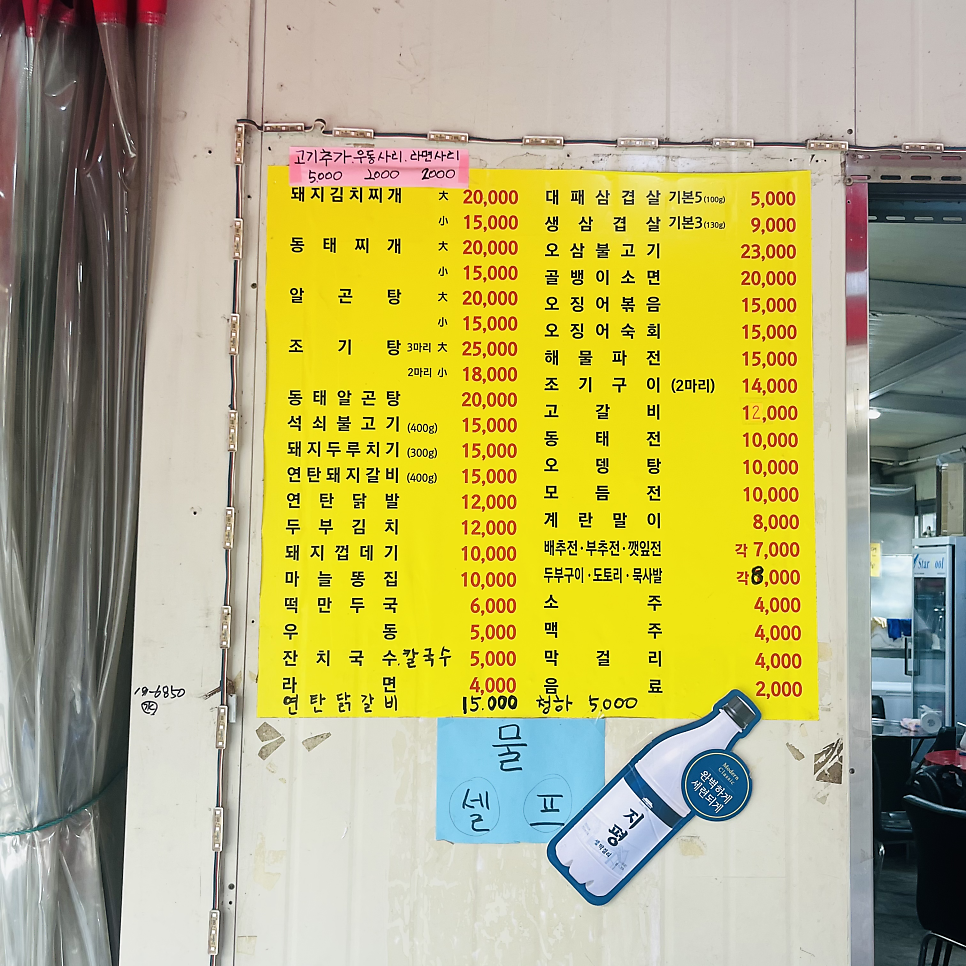 고기추가.우동사리.라면사리
5,000 2000 2000
돼지김치찌개 大 20,000
小 15,000
동태찌개 大 20,000
小 15,000
알곤탕 大 20,000
小 15,000
조기탕 3마리 大 25,000
2마리 小 18,000
동태알곤탕 20,000
석쇠불고기 (400g) 15,000
돼지두루치기 (300g) 15,000
연탄돼지갈비 (400g) 15,000
연탄닭발 12,000
두부김치 12,000
돼지껍데기 10,000
마늘똥집 10,000
떡만두국 6,000
우동 5,000
잔치국수.칼국수 5,000
라면 4,000
연탄닭갈비 15.000
대패삼겹살 기본5(100g) 5,000
생삼겹살 기본3(130g) 9,000
오삼불고기 23,000
골뱅이소면 20,000
오징어볶음 15,000
오징어숙회 15,000
해물파전 15,000
조기구이 (2마리) 14,000
고갈비 12,000
동태전 10,000
오뎅탕 10,000
모듬전 10,000
계란말이 8,000
배추전·부추전·깻잎전 각 7,000
두부구이·도토리·묵사발 각 8,000
소주 4,000
맥주 4,000
막걸리 4,000
음료 2,000
청하 5,000
물
셀프
Modern
Classic
완벽하게
세련되게
지평
생막걸리
19-6850